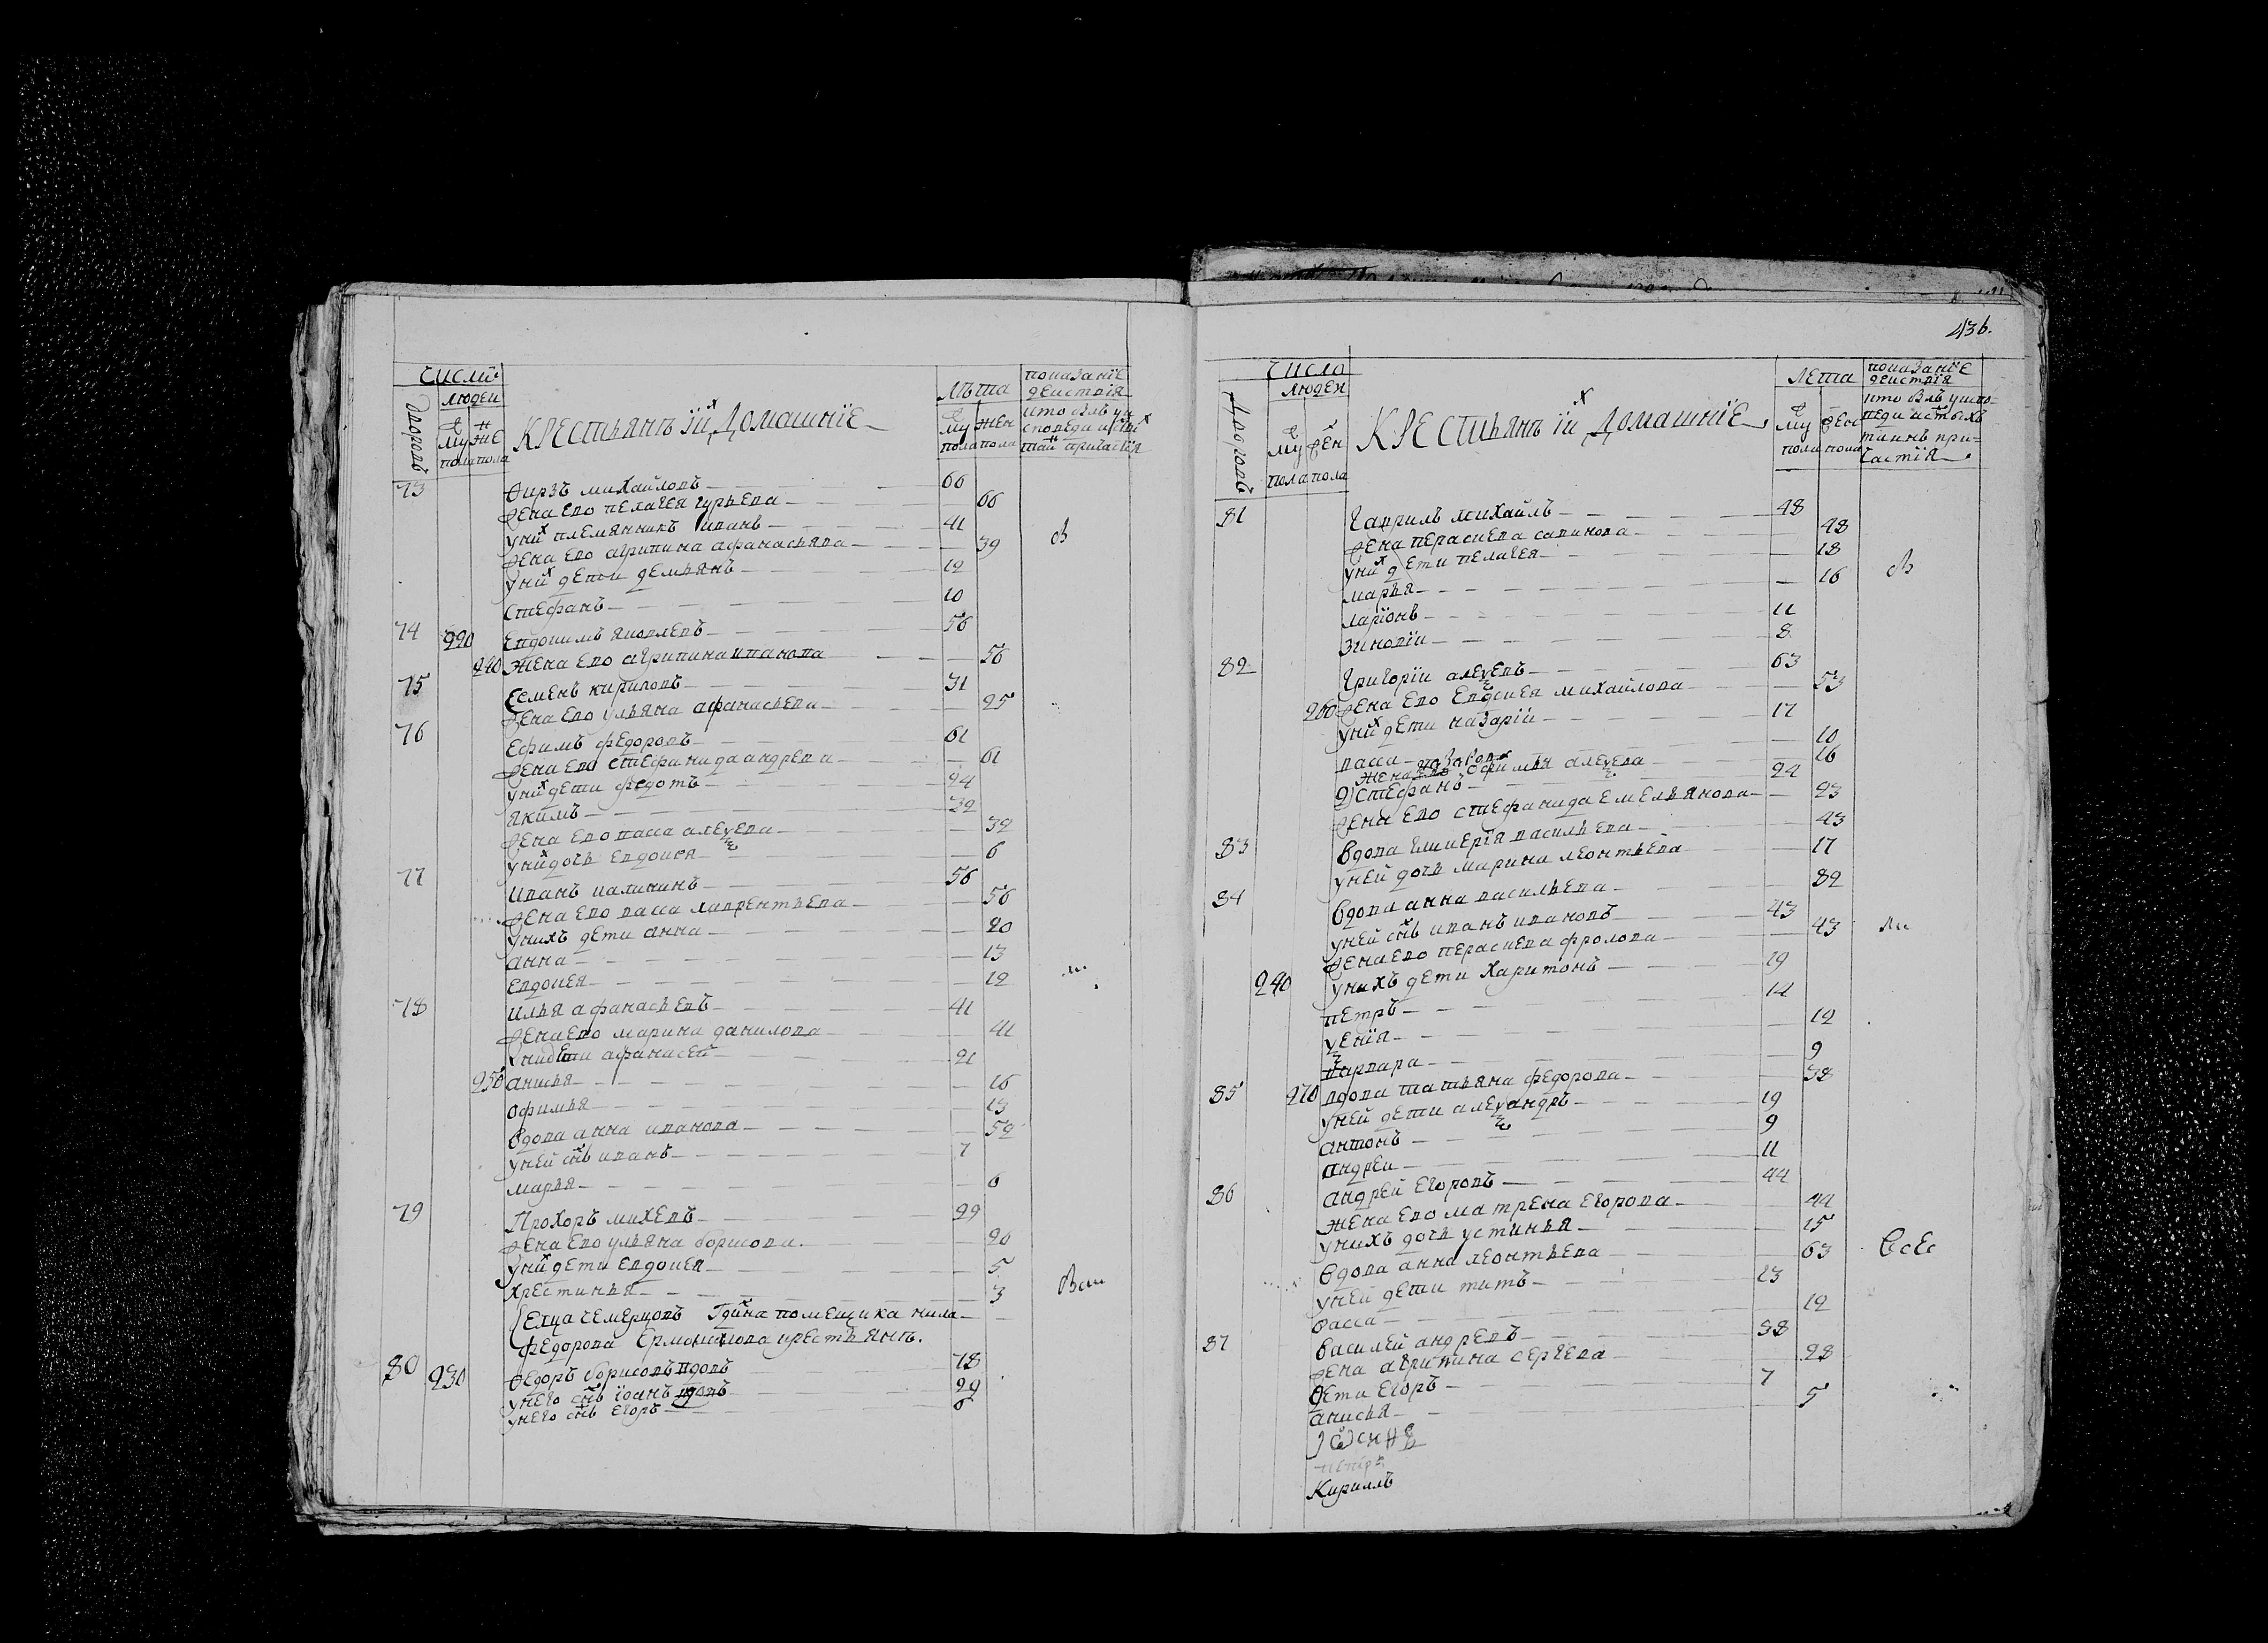 число
дворовъ
людеи
му же
пола пола
КРЕСТЬЯНЪ ИИХ ДОМАШНIЕ
лѣта
му жен
пола пола
показанїе
деиствiя
73 Фирзъ михайловъ 66
жена ево пелагея гурьева 66
уних племянникъ иванъ 41
жена ево агрипина афанасьева 39
уних дети демьянъ 12
стефанъ 10
74 220 Евдокимъ яковлевъ 56
240 жена ево агрипина иванова 56
75 Семенъ кириловъ 31
жена ево ульяна афанасьева 25
76 Ефимъ федоровъ 61
жена ево стефанида андрева 61
уних дети федотъ 24
якимъ 32
жена ево васса алеѯева 32
уних дочь евдокея 6
77 иванъ калининъ 56
жена ево васса лаврентьева 56
унихъ дети анна 20
анна 13
евдокея 12
78 илья афанасьевъ 41
жена ево марина данилова 41
уних дети афанасеи 21
250 анисья 16
офимья 13
вдова анна иванова 52
уней снъ иванъ 7
марья 6
79 Прохоръ михевъ 29
жена ево ульяна борисова 20
уних дети евдокея 5
хрестинья 3
селца чемерцовъ Гдина помещика нила
федорова Ермолова крестьянъ.
80 230 Федоръ борисовъ вдовъ 78
унего снъ iоанъ вдовъ 29
унего снъ егоръ 6
436.
число
дворовъ
людеи
му жен
пола пола
КРЕСТЬЯНЪ ИИХ ДОМАШНIЕ
лета
му женс
пола пола
показанїе
деиствiя
кто былъ уиспо-
веди истыхъ
таинъ при-
частiя
81 Гаврилъ михаилъ 48
жена пераскева савинова 48
уних дети пелагея 18
марья 16
ларiонъ 11
зиновiи 8
82 Григорiи алеѯевъ 63
260 жена ево евдокея михайлова 53
уних дети назарiи 17
васса 10
жена назарова офимья алеѯева 16
2) стефанъ 24
жена ево стефанида емельянова 23
83 Вдова гликерiя васильева 43
уней дочь марина леонтьева 17
84 вдова анна васильева 82
уней снъ иванъ ивановъ 43
жена ево пераскева фролова 43
240 унихъ дети харитонъ 19
петръ 14
ѯенiя 12
варвара 9
85 270 вдова татьяна федорова 38
уней дети алеѯандръ 19
антонъ 9
андреи 11
86 андрей егоровъ 44
жена ево матрена егорова 44
унихъ дочь устинья 15
вдова анна леонтьева 63 все
уней дети титъ 23
васса 12
87 василей андревъ 38
жена агрипина сергева 28
дети егоръ 7
анисья 5
Кирилъ